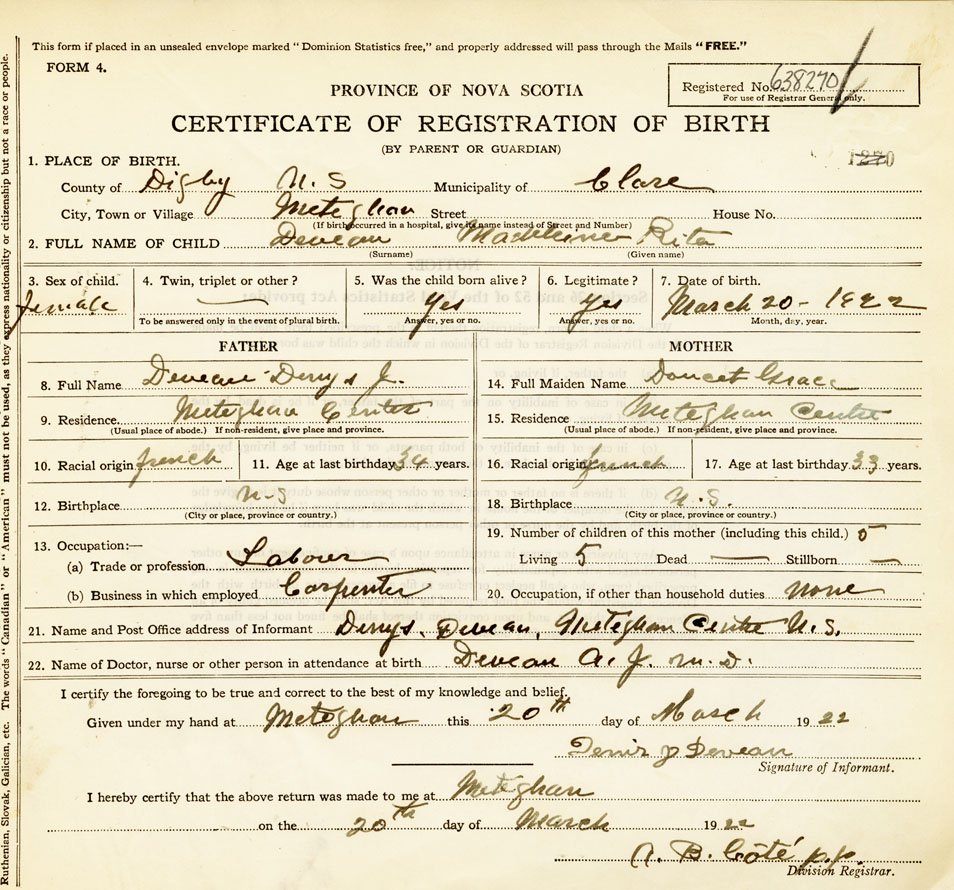 This form if placed in an unsealed envelope marked "Dominion Statistics free," and properly addressed will pass through the Mails "FREE."
FORM 4.
Registered No. 638270
For use of Registrar General only.
PROVINCE OF NOVA SCOTIA
CERTIFICATE OF REGISTRATION OF BIRTH
(BY PARENT OR GUARDIAN)
1. PLACE OF BIRTH.
County of Digby N. S Municipality of Clare
City, Town or Village Meteghan Street House No.
(If birth occurred in a hospital, give its name instead of Street and Number)
2. FULL NAME OF CHILD Deveau Madeleine Rita
(Surname) (Given name)
3. Sex of child. 4. Twin, triplet or other? 5. Was the child born alive? 6. Legitimate? 7. Date of birth.
female — Yes Yes March 20 - 1922
To be answered only in the event of plural birth. Answer, yes or no. Answer, yes or no. Month, day, year.
FATHER MOTHER
8. Full Name Deveau Denys J. 14. Full Maiden Name Doucet Grace
9. Residence Meteghan Center 15. Residence Meteghan Centre
(Usual place of abode.) If non-resident, give place and province. (Usual place of abode.) If non-resident, give place and province.
10. Racial origin french 11. Age at last birthday 34 years. 16. Racial origin french 17. Age at last birthday 33 years.
12. Birthplace N-S 18. Birthplace N.S.
(City or place, province or country.) (City or place, province or country.)
13. Occupation:— 19. Number of children of this mother (including this child.) 5
(a) Trade or profession Labour Living 5 Dead — Stillborn —
(b) Business in which employed Carpenter 20. Occupation, if other than household duties none
21. Name and Post Office address of Informant Denys. Deveau, Meteghan Centre N.S.
22. Name of Doctor, nurse or other person in attendance at birth Deveau A. J. M.D.
I certify the foregoing to be true and correct to the best of my knowledge and belief.
Given under my hand at Meteghan this 20th day of March 19 22
Denis J Deveau
Signature of Informant.
I hereby certify that the above return was made to me at Meteghan
on the 20th day of March 19 22
A. B. Côté p.p.
Division Registrar.
Ruthenian, Slovak, Galician, etc. The words "Canadian" or "American" must not be used, as they express nationality or citizenship but not a race or people.